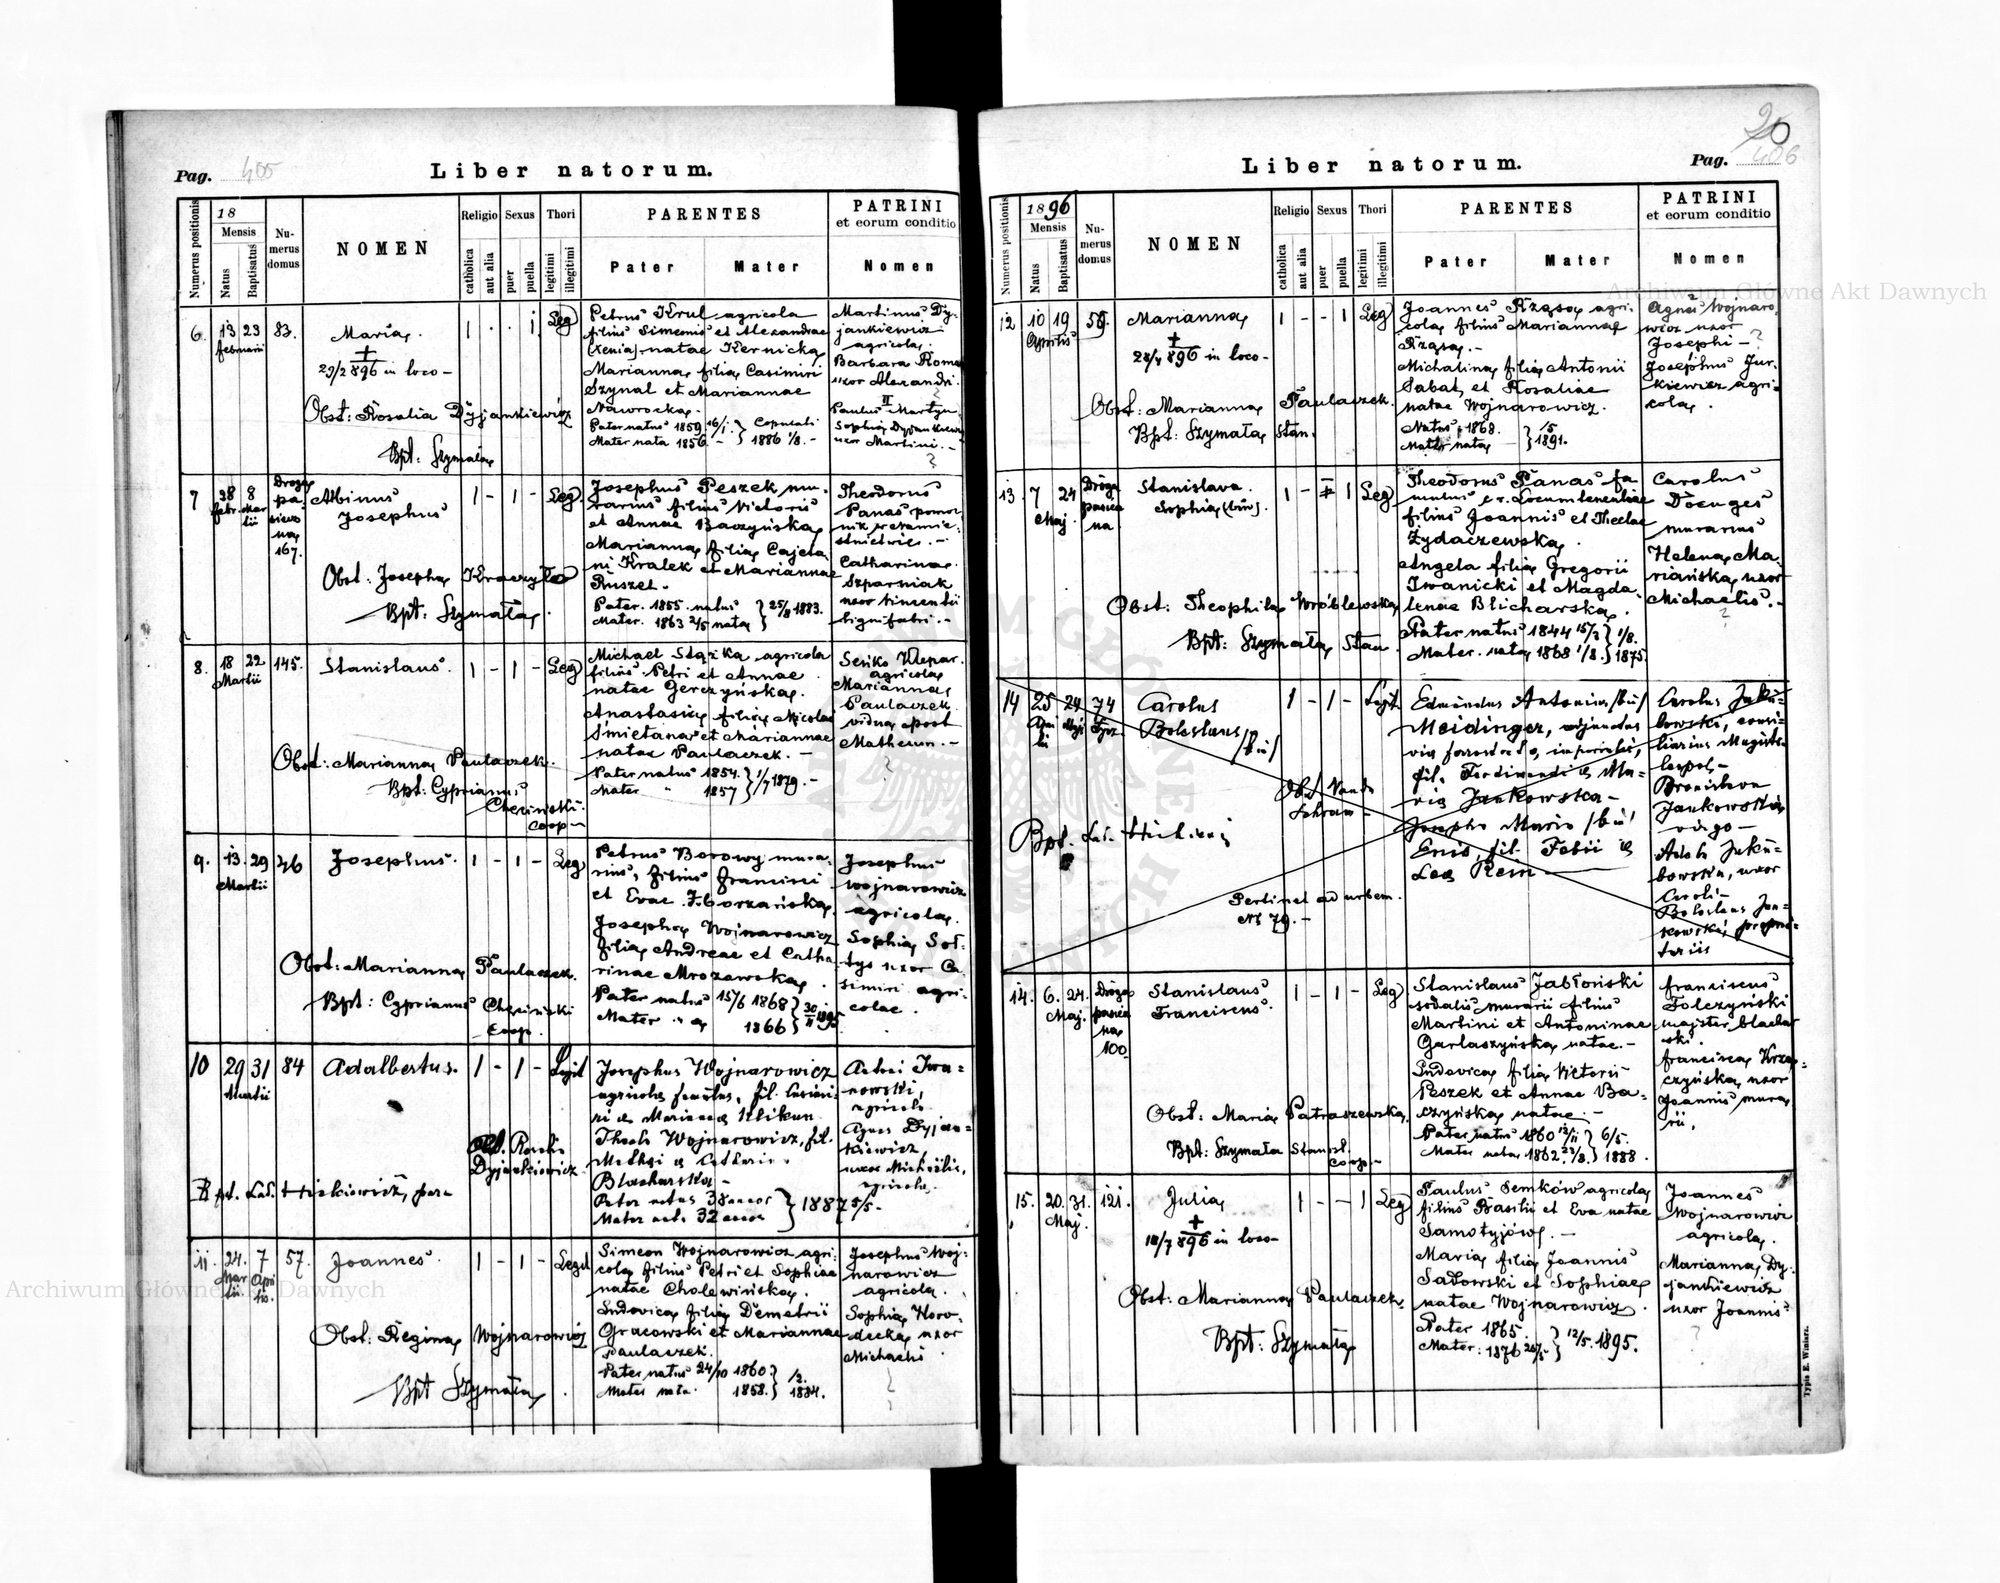 Pag. 405
Liber natorum.
Numerus positionis
18
Mensis
Natus
Baptisatus
Numerus domus
NOMEN
Religio
catholica
aut alia
Sexus
puer
puella
Thori
legitimi
illegitimi
PARENTES
Pater
Mater
PATRINI
et eorum conditio
Nomen
6. 13 23 83.
februarii
Maria
+
29/2 896 in loco -
1 . . 1 Leg
Obst: Rosalia Dyjankiewicz
Bpt: Szymała
Petrus Krul agricola
filius Simeonis et Alexandrae
(Xenia) natae Kernicka
Marianna filia Casimiri
Szynal et Mariannae
Nawrocka.
Pater natus 1859 16/1. } Copulati
Mater nata 1856 - } 1886 1/8. -
Martinus Dy-
jankiewicz
agricola
Barbara Roma
uxor Alexandri.
II
Paulus Martyn
Sophia Dyjankiewicz
uxor Martini. -
?
7 28 8
febr. Martii
Droga pasieczna 167.
Albinus
Josephus
1 - 1 - Leg
Obst: Josepha Kraczyło
Bpt: Szymała
Josephus Peszek mu-
rarius filius Victoris
et Annae Baczyńska
Marianna filia Cajeta
ni Kralek et Mariannae
Ruszel.
Pater. 1855. natus } 25/8 1883.
Mater. 1863 2/5 nata
Theodorus
Panas pomoc
nik w
Catharina
Szparniak
uxor Vincentii
lignifabri. -
8. 18 22 145.
Martii
Stanislaus.
1 - 1 - Leg
Obst: Marianna Paulaczek.
Bpt: Cyprianus
Checiński
Coop -
Michael Stańka agricola
filius Petri et Annae
natae Gerczyńska.
Anastasia filia Nicolai
Śmietana et Mariannae
natae Paulaczek. -
Pater natus 1854. } 1/7 1879. -
Mater " 1857
Seńko Klepar.
agricola
Marianna
Paulaczek
vidua post
Matheum. -
?
9. 13. 29 46
Martii
Josephus.
1 - 1 - Leg
Obst: Marianna Paulaczek.
Bpt: Cyprianus Chęciński
Coop.
Petrus Borowy mura-
rius, filius Francisci
et Evae Zborzańska.
Josepha Wojnarowicz
filia Andreae et Catha-
rinae Mrozowska.
Pater natus 15/6 1868 } 30/11 1895
Mater " a 1866
Josephus
Wojnarowicz
agricola.
Sophia Soł-
tys uxor Ca-
simiri agri-
colae.
10 29 31 84
Martii
Adalbertus.
1 - 1 - Legit
Obst. Rosalia
Dyjankiewicz
Bpt. Lad. Hickiewicz, par.
Josephus Wojnarowicz
agricola famulus, fil. Casimi-
ri & Mariannae Klikun
Thecla Wojnarowicz, fil.
Mathaei & Catharinae
Blacharska -
Pater natus 38 annor } 1887 5/5 -
Mater nata 32 annor
Iwa-
nowski,
agricola
Agnes Dyjan-
kiewicz,
uxor Michaelis,
agricola.
11. 24. 7 57.
Martii Aprilis.
Joannes.
1 - 1 - Legit
Obst: Regina Wojnarowicz
Bpt Szymała
Simeon Wojnarowicz agri-
cola filius Petri et Sophiae
natae Cholewińska.
Ludovica filia Demetrii
Gracowski et Mariannae
Paulaczek.
Pater natus 24/10 1860. } /2.
Mater nata. 1858. } 1884.
Josephus Woj-
narowicz
agricola.
Sophia Horo-
decka uxor
Michaelis
?
20
Pag. 406
Liber natorum.
Numerus positionis
1896
Mensis
Natus
Baptisatus
Numerus domus
NOMEN
Religio
catholica
aut alia
Sexus
puer
puella
Thori
legitimi
illegitimi
PARENTES
Pater
Mater
PATRINI
et eorum conditio
Nomen
12 10 19 58.
Aprilis
Marianna
+
28/4 896 in loco -
1 - - 1 Leg
Obst: Marianna Paulaczek.
Bpt: Szymała Stan.
Joannes Rząsa agri-
cola filius Mariannae
Rząsa. -
Michalina filia Antonii
Sabat et Rosaliae
natae Wojnarowicz.
Natus 1868. } /5
Mater nata } 1891.
Agnes Wojnaro-
wicz uxor
Josephi - ?
Josephus Jur-
kiewicz agri-
cola.
13. 7 24
Maj.
Droga pasieczna
Stanislava
Sophia (bin).
1 - 1 Leg
Obst: Theophila Wróblewska
Bpt: Szymała Stan
Theodorus Panas fa-
mulus c. r. Locumtenentiae
filius Joannis et Theclae
Żydaczewska.
Angela filia Gregorii
Iwanicki et Magda-
lenae Blicharska.
Pater natus 1844 15/2 } 1/8.
Mater. nata 1868 1/8. } 1875.
Carolus
Doenges
murarius
Helena Ma-
riańska uxor
Michaelis. -
?
14 25 24 74
Aprilis Maji
Carolus
Boleslaus
/bin/
1 - 1 - Legit
Obst Vanda
Schram -
Bpt. Lad. Hickiewicz
Pertinet ad urbem.
No 79. -
Edmundus Antonius /bin/
Meidinger, adjunctus
viae ferreae, imperialis,
fil. Ferdinandi & Ma-
ria Jankowska -
Josepha Maria /bin/
Enis, fil. Fabii &
Lea Rein
Carolus Jaku-
bowski, consi-
liarius Magistr.
leopol. -
Bronislava
Jankowska
virgo -
Adela Jaku-
bowska, uxor
Caroli -
Boleslaus Jan-
kowski, proprie-
tarius
14. 6. 24.
Maj.
Droga pasieczna 100
Stanislaus
Franciscus.
1 - 1 - Leg
Obst: Maria Patraszewska.
Bpt: Szymała Stanisl.
Coop -
Stanislaus Jabłoński
sodalis murarii filius
Martini et Antoninae
Garlaszyńska natae. -
Ludovica filia Victoris
Peszek et Annae Ba-
czyńska natae. -
Pater natus 1860 13/11 } 6/5.
Mater nata 1862. 23/8. } 1888.
Franciscus
Tolczyński
majster blachar
ski.
Francisca Krza-
czyńska uxor
Joannis mura
rii.
15. 20. 31. 121.
Maj.
Julia
+
18/7 896 in loco
1 - - 1 Leg
Obst: Marianna Paulaczek.
Bpt: Szymała
Paulus Semków agricola
filius Basilii et Eva natae
Samotyjów. -
Maria filia Joannis
Sadowski et Sophiae
natae Wojnarowicz.
Pater 1865. } 12/5. 1895.
Mater: 1876 26/5
Joannes
Wojnarowicz
agricola.
Marianna Dy-
jankiewicz
uxor Joannis
?
Typis E. Winiarz.
Archiwum Główne Akt Dawnych
Archiwum Główne Akt Dawnych